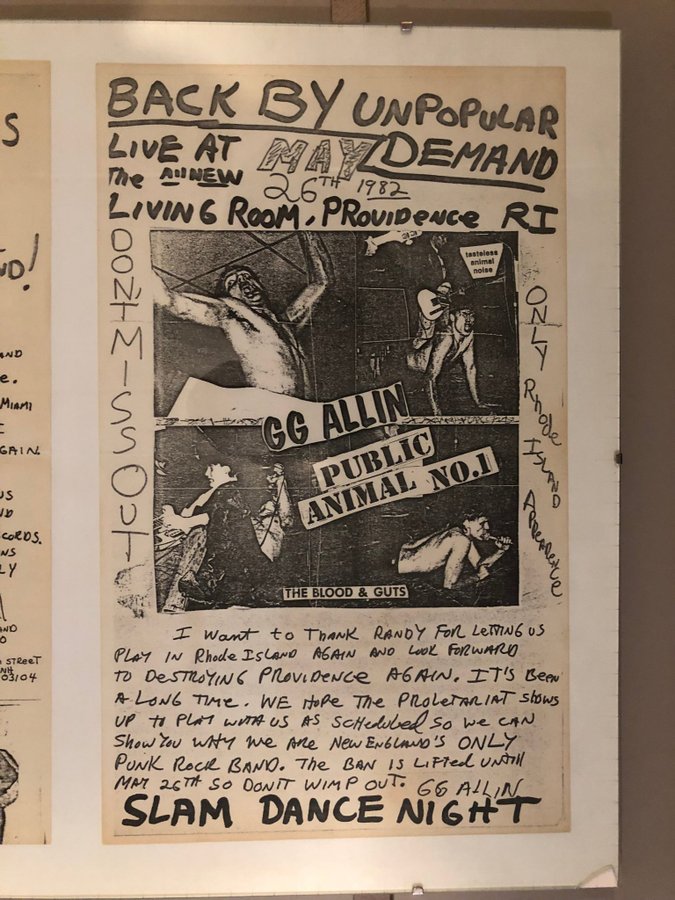 BACK BY UNPOPULAR
DEMAND
LIVE AT
The All NEW
MAY
26TH 1982
LIVING ROOM, PROVIDENCE RI
DON'T MISS OUT
ONLY Rhode ISLAND APPEARENCE
tasteless
animal
noise
GG ALLIN
PUBLIC
ANIMAL NO.1
THE BLOOD & GUTS
I Want to THANK RANDY FOR LETTING US
PLAY IN Rhode ISLAND AGAIN AND LOOK FORWARD
TO DESTROYING PROVIDENCE AGAIN. IT'S BEEN
A LONG TIME. WE HOPE THE PROLETARIAT SHOWS
UP TO PLAY WITH US AS SCHEDULED SO WE CAN
SHOW YOU WHY WE ARE NEW ENGLAND'S ONLY
PUNK ROCK BAND. THE BAN IS LIFTED UNTIL
MAY 26TH SO DON'T WIMP OUT. GG ALLIN
SLAM DANCE NIGHT
S
ND!
AND
e.
MIAMI
I
GAIN.
US
ND
CORDS.
NS
LY
AND
O
STREET
NH
03104